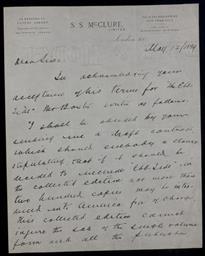 S. S. McCLURE,
LIMITED.
London
May 12/1894
Dear Sirs:
In acknowledging your
acceptance of his terms for "The Ebb
Tide" Mr. writes as follows:
"I shall be obliged by your
sending me a draft contract
which should embody a clause
stipulating that if it should be
decided to include "Ebb Tide" in
the collected edition not more than
two hundred copies may be
into America free of charge.
This collected edition cannot
injure the sale of the small volume
form and all the